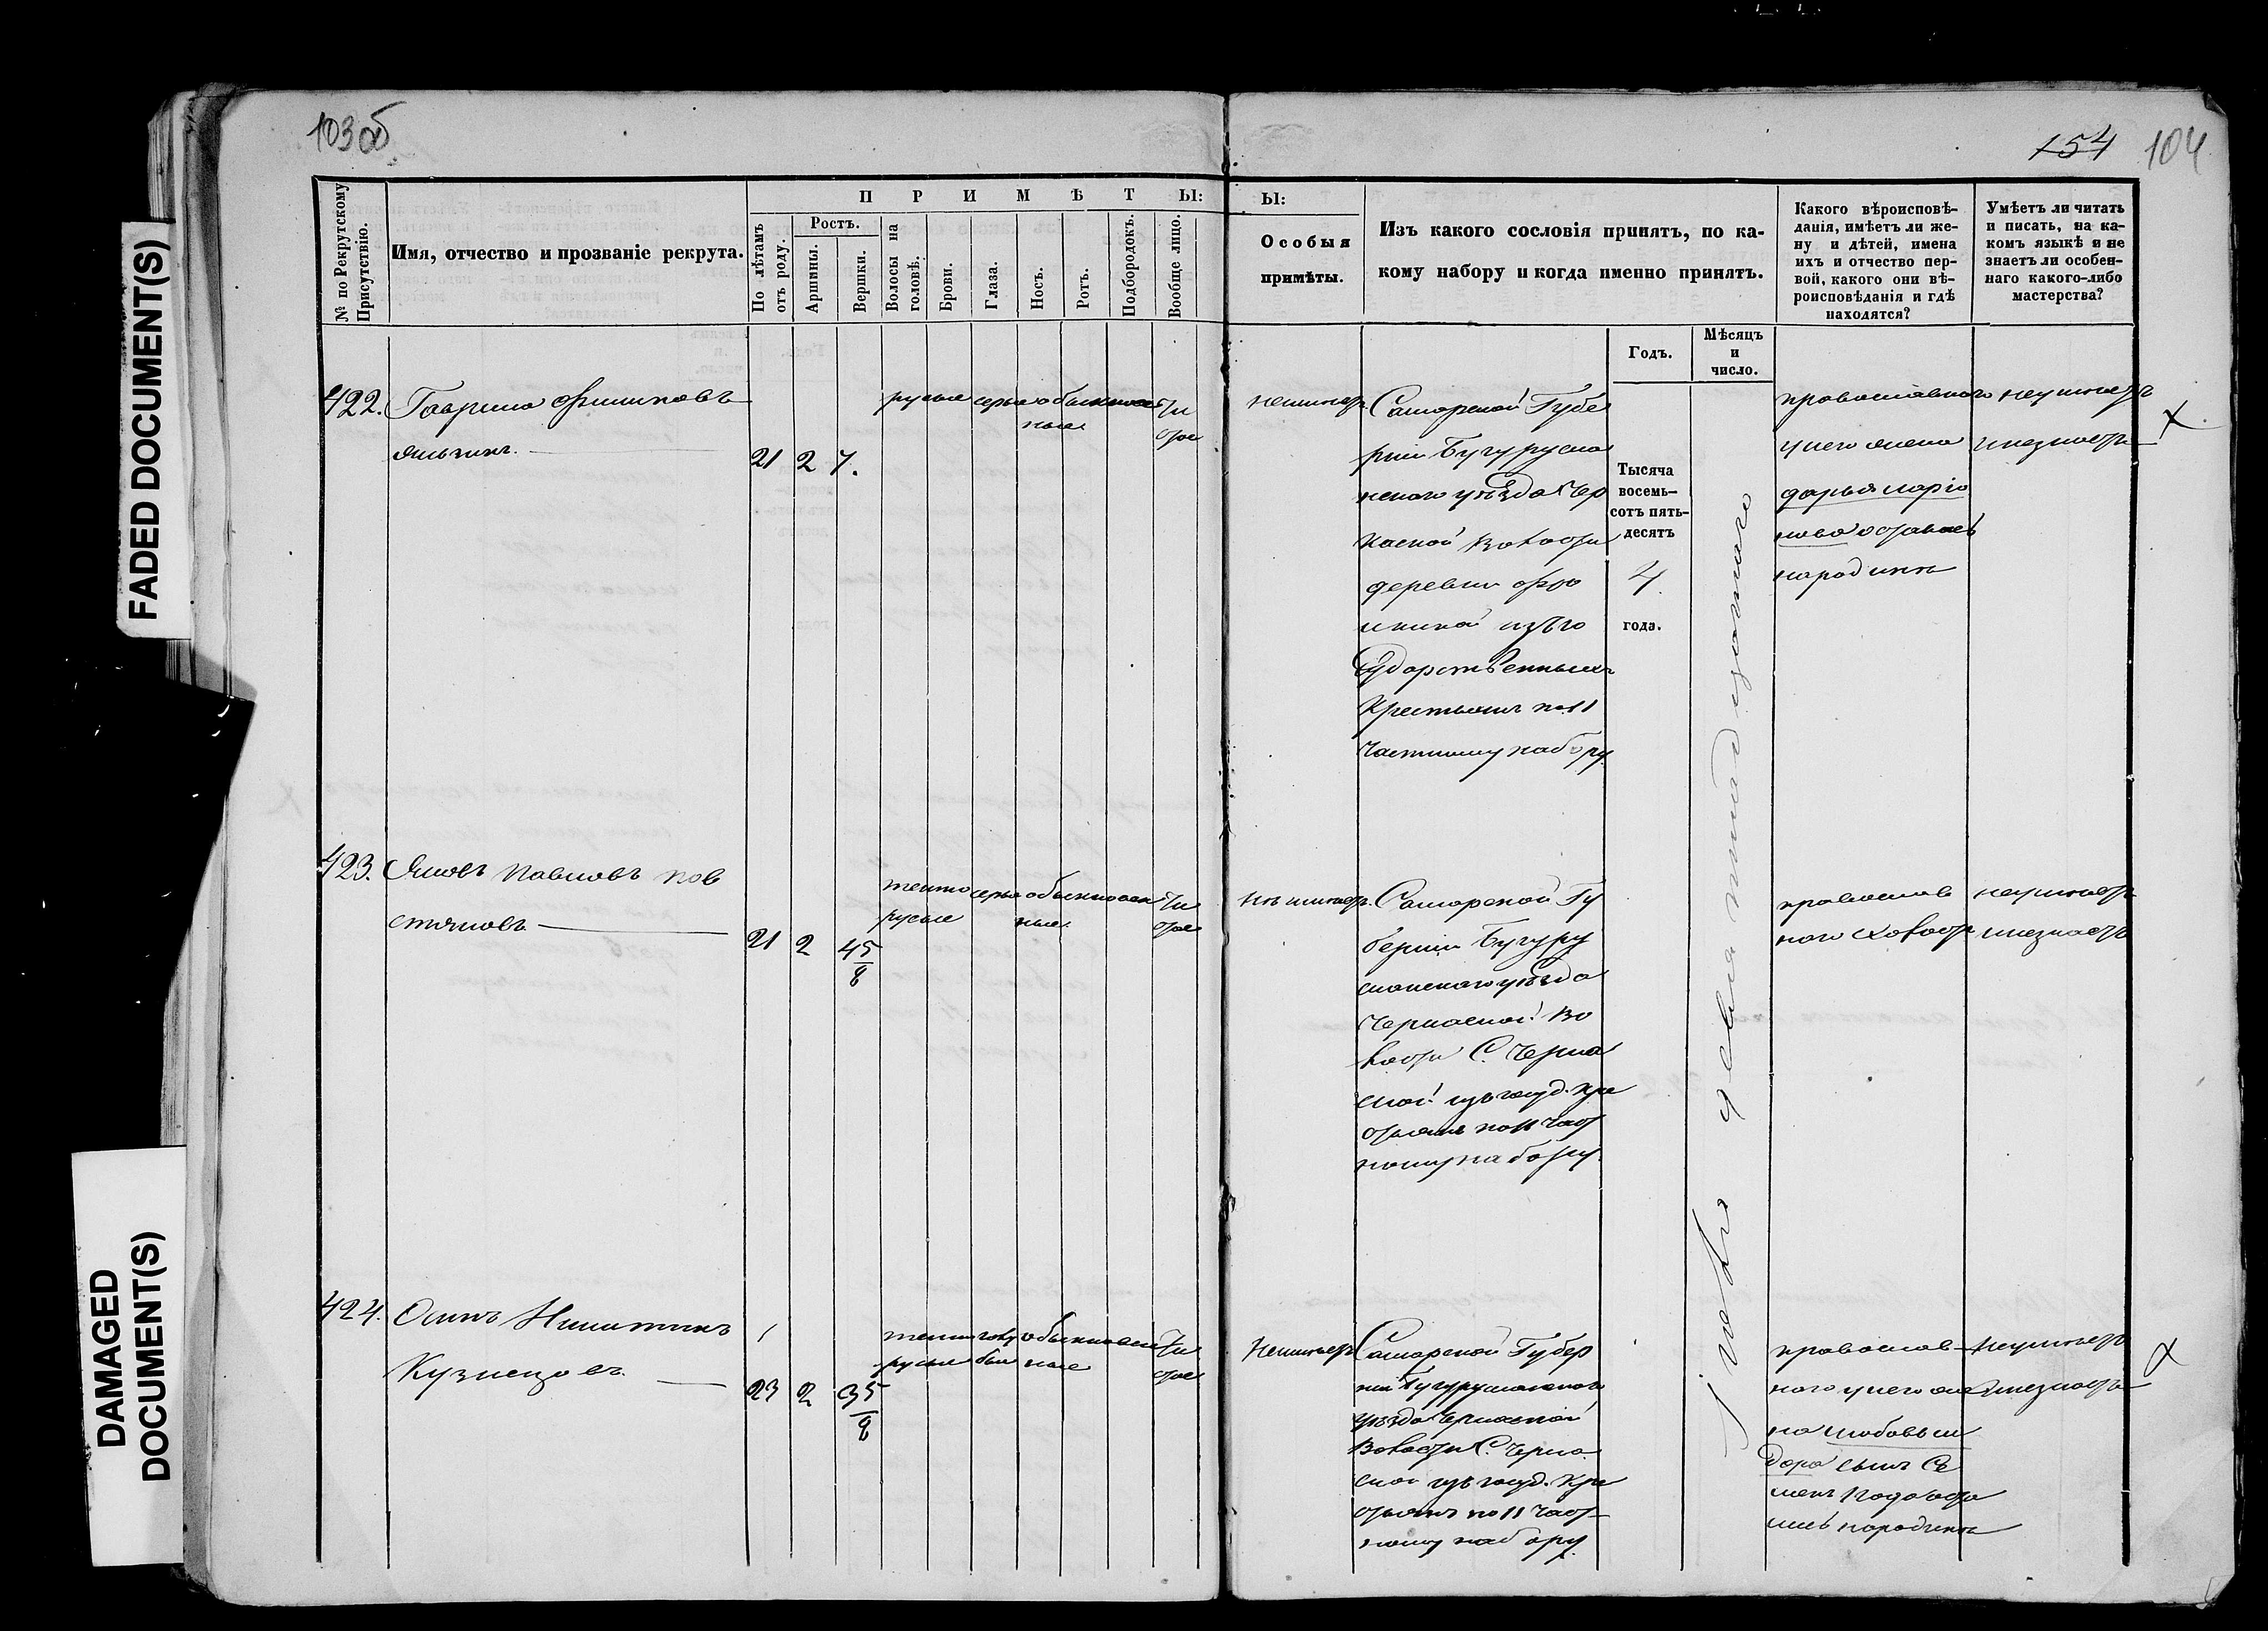 103 об
154 104
FADED DOCUMENT(S)
DAMAGED
DOCUMENT(S)
№ по Рекрутскому
Присутствію.
Имя, отчество и прозваніе рекрута.
ПРИМѢТЫ:
По лѣтамъ
отъ роду.
Ростъ.
Аршины.
Вершки.
Волосы на
головѣ.
Брови.
Глаза.
Носъ.
Ротъ.
Подбородокъ.
Вообще лицо.
Ы:
Особыя
примѣты.
Изъ какого сословія принятъ, по ка-
кому набору и когда именно принятъ.
Годъ.
Мѣсяцъ
и
число.
Какого вѣроисповѣ-
данія, имѣетъ ли же-
ну и дѣтей, имена
ихъ и отчество пер-
вой, какого они вѣ-
роисповѣданія и гдѣ
находятся?
Умѣетъ ли читать
и писать, на ка-
комъ языкѣ и не
знаетъ ли особен-
наго какого-либо
мастерства?
422. Гаврила
21 2 7.
русые серые обыкновен
ные
чи
стое
неимеетъ
Самарской Губе
рніи Бугурусла
нскаго уѣзда Чер
каской Волости
деревни
изъ го
сударственныхъ
Крестьянъ по 11
частному набору
Тысяча
восемь-
сотъ пять-
десятъ
4
года.
православнаго
у него жена
дарья ларіо
нова осталась
народинѣ
неумеетъ
и незнаетъ
423. Яковъ Павловъ
21 2 4 5/8
темно
русые
серые обыкновен
ные
чи
стое
не имѣетъ.
Самарской Гу
берніи Бугуру
сланскаго уѣзда
Черкаской Во
лости С. Черка
ской изъ госуд. кре
стьянъ по 11 част
ному набору.
православ
наго холостъ
неумѣетъ
и незнаетъ
424. Осипъ Никитинъ
Кузнецовъ.
23 2 3 5/8
темно
русые
голу
бые
обыкновен
ные
чи
стое
Неимѣетъ
Самарской Губер
ніи Бугурусланскаго
уѣзда Черкаской
Волости С. Черка
ской изъ госуд. кре
стьянъ по 11 част
ному набору.
православ
наго у него же
на любовь си
дора сынъ Се
менъ 1 года оста
лись народинѣ
неумѣетъ
и незнаетъ
девятнадцатаго